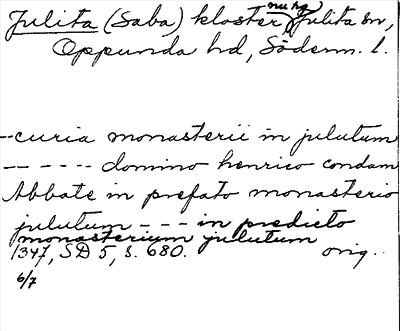 Julita (Saba) kloster nu hg Julita sn,
Oppunda hd, Söderm. l.
--curia monasterii in julutum
----- domino henrico condam
Abbate in prefato monasterio
julutum --- in predicto
monasterium julutum
1347, SD 5, s. 680. orig.
6/7